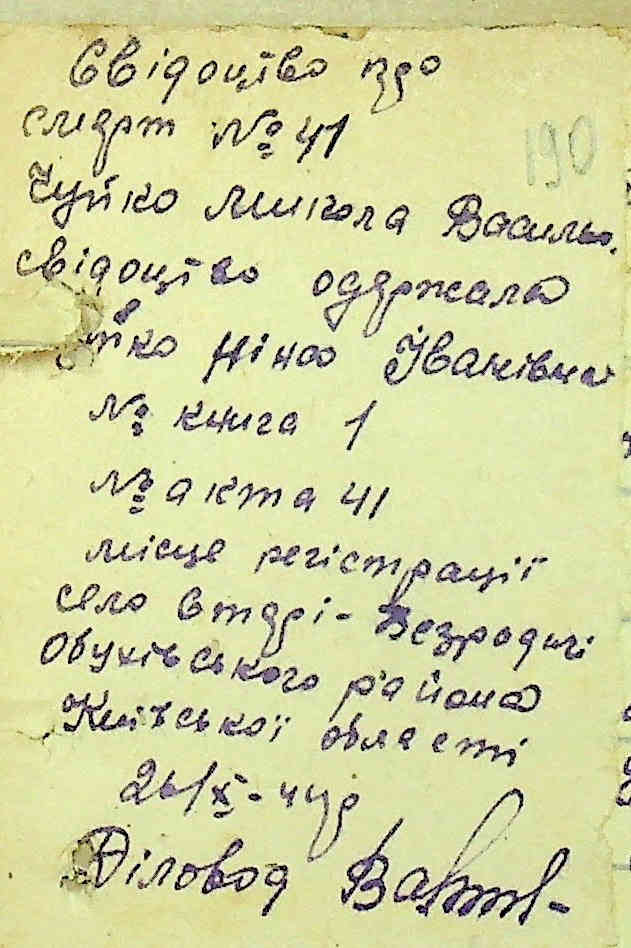 Свідоцтво про
смерт № 41
190
Чуйко Микола Василь.
свідоцтво одержала
йко Ніна Іванівна
№ книга 1
№ акта 41
місце регістрації
село втарі-Безродичі
Обухівського района
Київської области
26/X-44р
Діловод